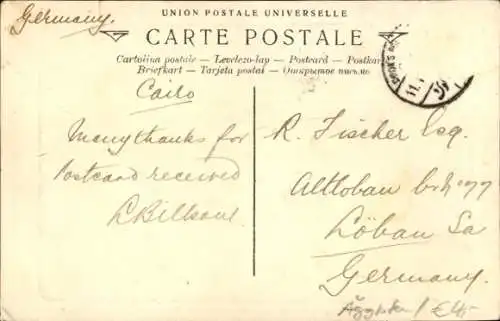 (Germany.
UNION POSTALE UNIVERSELLE
CARTE POSTALE
Cartolina postale — Levelezo-lap — Postcard — Postkarte
Briefkart — Tarjeta postal — Открытое письмо
Cairo
Many thanks for
Postcard received
R. Fischer Esq.
Altlöbau
Löbau Sa
Germany.